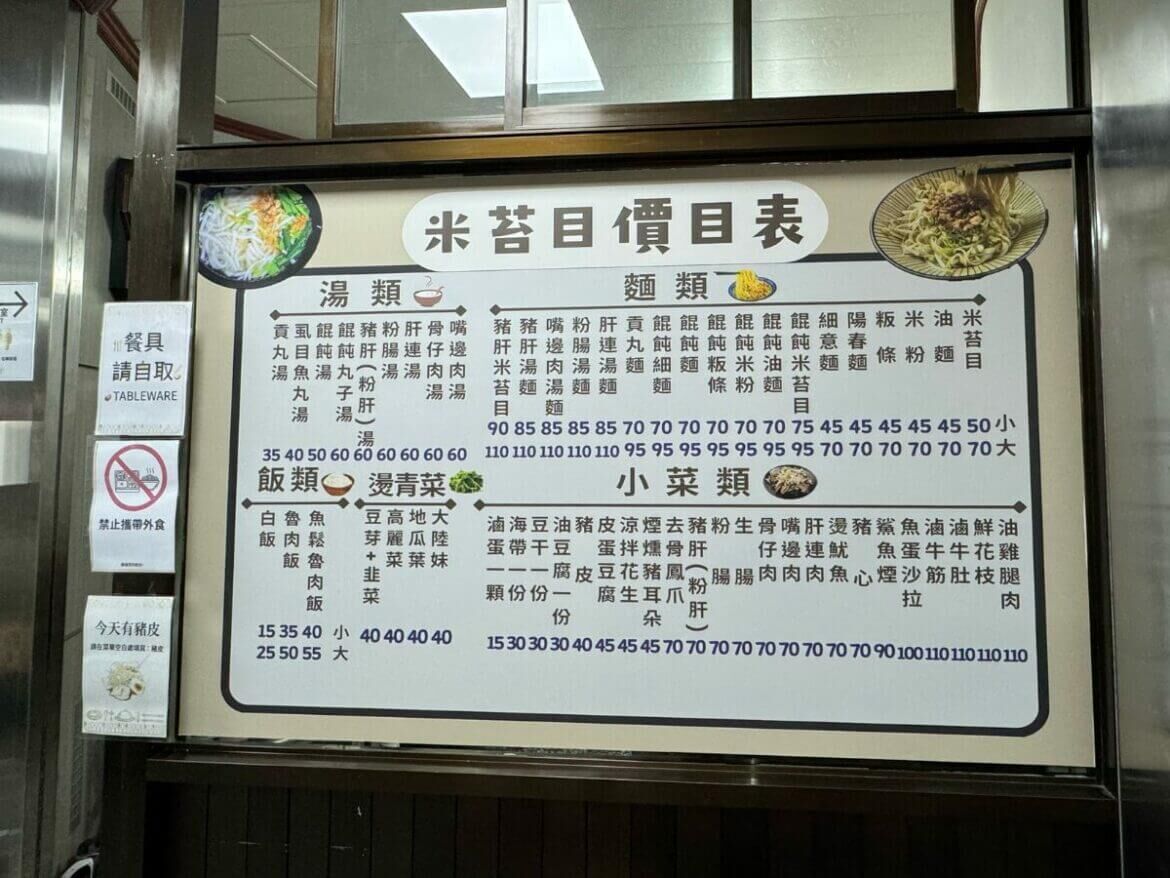 米苔目價目表
湯類
貢丸湯
虱目魚丸湯
餛飩湯
餛飩丸子湯
豬肝(粉肝)湯
粉腸湯
肝連湯
骨仔肉湯
嘴邊肉湯
35 40 50 60 60 60 60 60 60
麵類
豬肝米苔目
豬肝湯麵
嘴邊肉湯麵
粉腸湯麵
肝連湯麵
貢丸麵
餛飩細麵
餛飩麵
餛飩粄條
餛飩米粉
餛飩油麵
餛飩米苔目
細意麵
陽春麵
粄條
米粉
油麵
米苔目
90 85 85 85 85 70 70 70 70 70 70 75 45 45 45 45 45 50 小
110 110 110 110 110 95 95 95 95 95 95 95 70 70 70 70 70 70 大
飯類
白飯
魯肉飯
魚鬆魯肉飯
15 35 40 小
25 50 55 大
燙青菜
豆芽+韭菜
高麗菜
地瓜葉
大陸妹
40 40 40 40
小菜類
滷蛋一顆
海帶一份
豆干一份
油豆腐一份
豬皮
皮蛋豆腐
涼拌花生
煙燻豬耳朵
去骨鳳爪
豬肝(粉肝)
粉腸
生腸
骨仔肉
嘴邊肉
肝連肉
燙魷魚
豬心
鯊魚煙
魚蛋沙拉
滷牛筋
滷牛肚
鮮花枝
油雞腿肉
15 30 30 30 40 45 45 45 70 70 70 70 70 70 70 70 70 90 100 110 110 110 110
餐具
請自取
TABLEWARE
禁止攜帶外食
今天有豬皮
請在菜單空白處填寫:豬皮
室